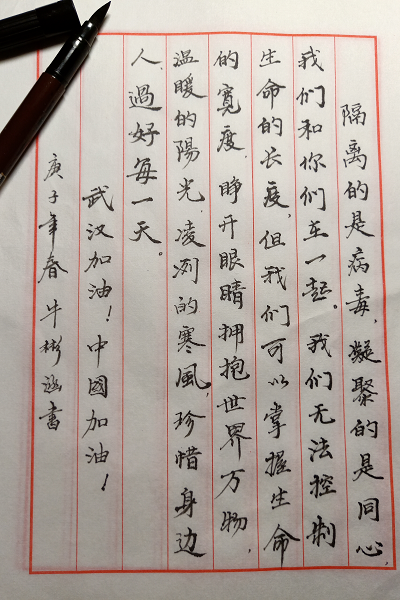 隔离的是病毒，凝聚的是同心，
我们和你们在一起。我们无法控制
生命的长度，但我们可以掌握生命
的寬度，睁开眼睛拥抱世界万物，
温暖的陽光，凌冽的寒風，珍惜身边
人，過好每一天。
武汉加油！中國加油！
庚子年春 牛彬涵書